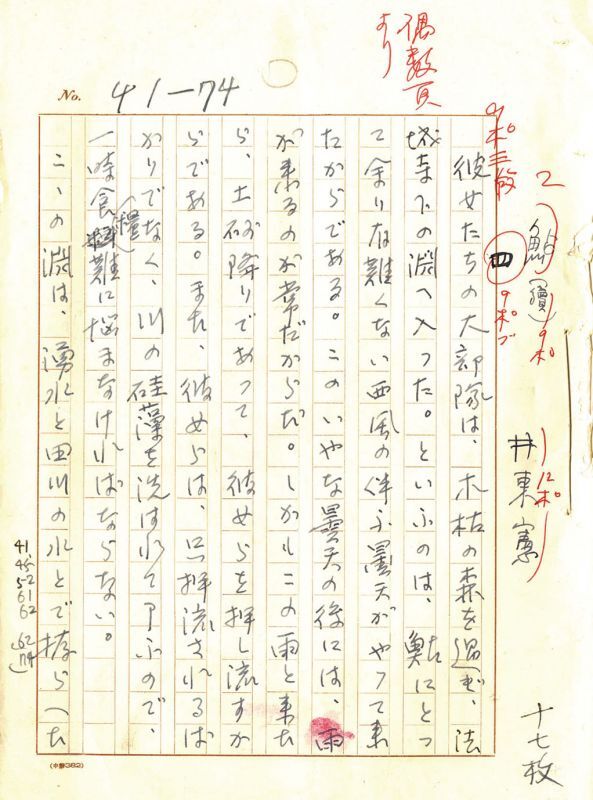 偶数頁
より
No. 41—74
2
鮎 (續) 9ポ
井東憲 12ポ
十七枚
9ポ三段
四 9ポブ
彼女たちの大部隊は、木枯の森を過ぎ、法
城寺下の淵へ入つた。といふのは、鮎にとつ
て余り有難くない西風の伴ふ曇天がやつて来
たからである。このいやな曇天の後には、雨
が来るのが常だからだ。しかもこの雨と来た
ら、土砂降りであつて、彼女らを押し流すか
らである。また、彼女らは、只押流されるば
かりでなく、川の硅藻を洗はれて了ふので、
一時食糧難に悩まなければならない。
こゝの淵は、湧水と田川の水とで拵らへた
41
45
52
61
62
(62
74)
(中靜382)